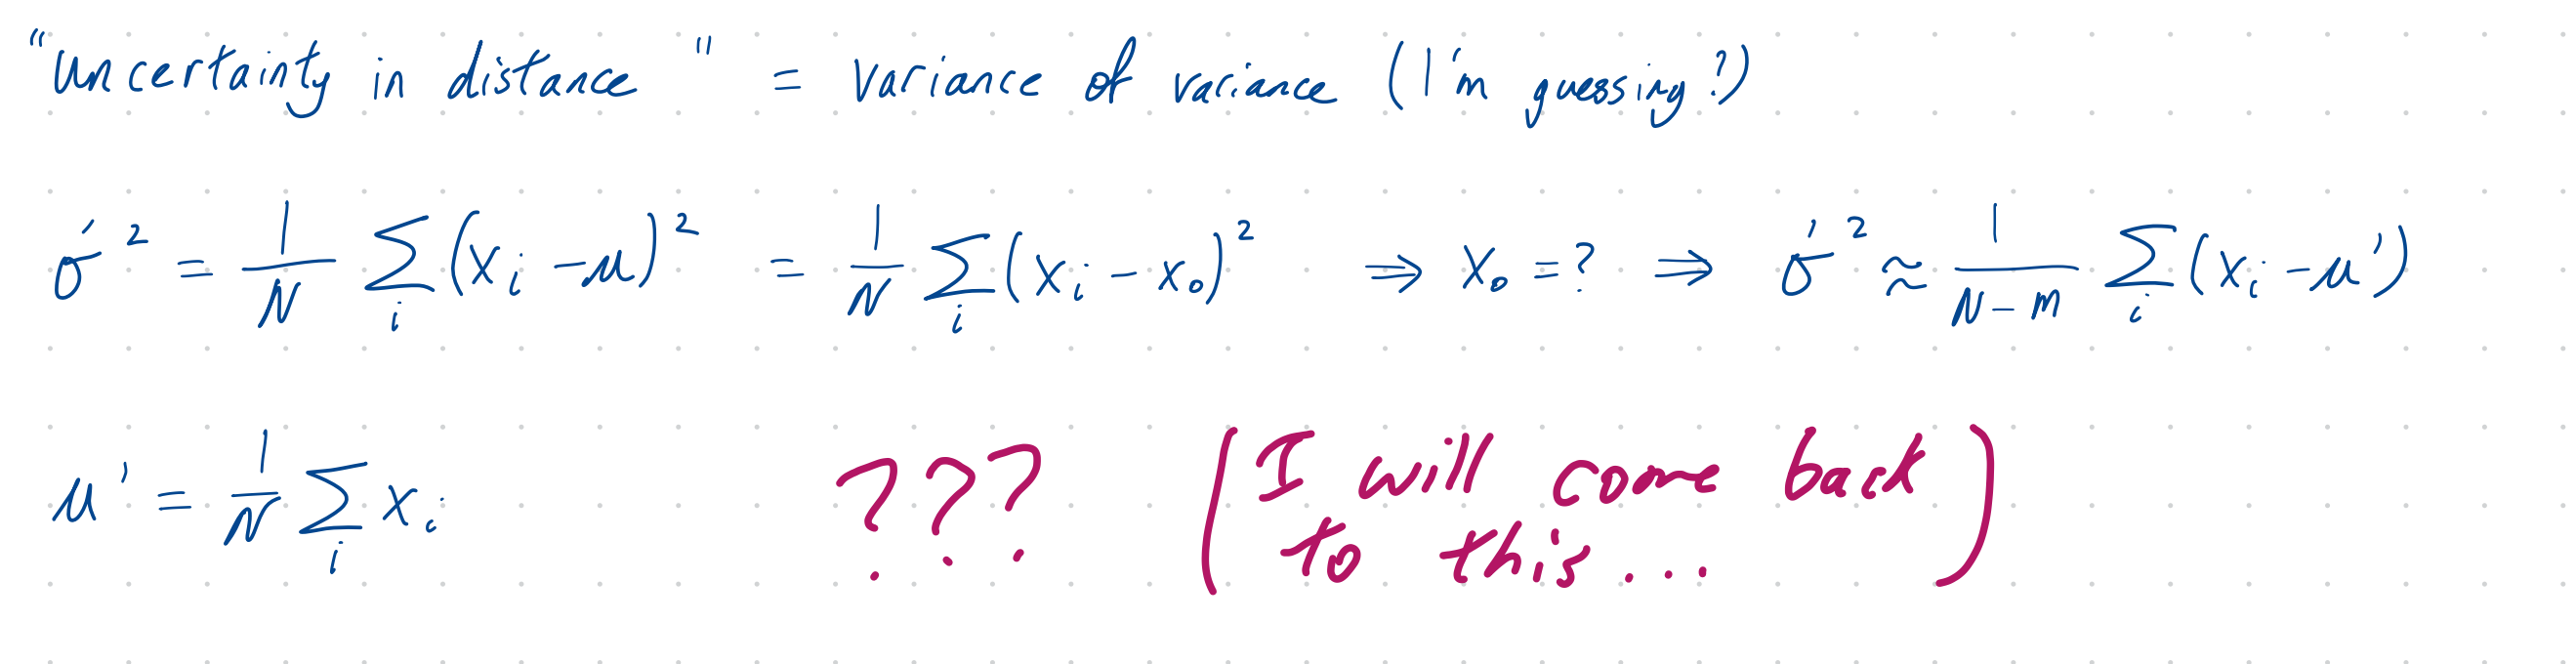 "uncertainty in distance" = variance of variance (I'm guessing?)
σ'² = 1/N Σᵢ (xᵢ - μ)² = 1/N Σᵢ (xᵢ - x₀)² ⇒ x₀ = ? ⇒ σ'² ≈ 1/(N-m) Σᵢ (xᵢ - μ')
μ' = 1/N Σᵢ xᵢ ??? (I will come back
to this...)